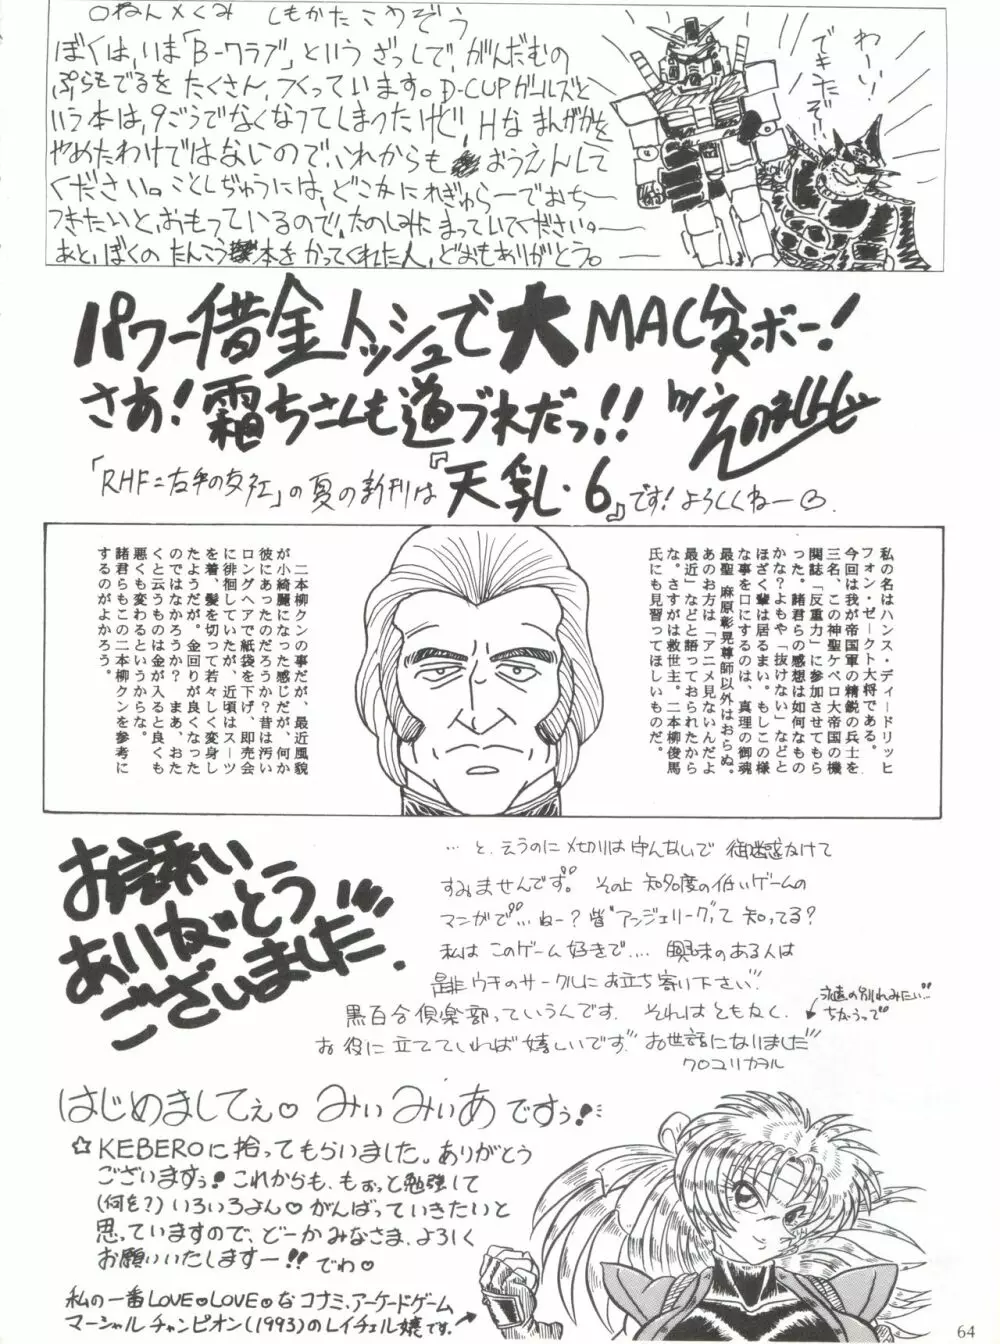 〇ねん×くみ しもかたこうぞう
ぼくは、いま「B-クラブ」というざっしで、がんだむの
ぷらもでるをたくさん、つくっています。D-CUPガールズと
いう本は、9ごうでなくなってしまったけど、Hなまんがかを
やめたわけではないので、これからもおうえんして
ください。ことしぢゅうには、どこかにれぎゅらーでおち
つきたいと、おもっているので、たのしみにまっていてください。
あと、ぼくのたんこう本をかってくれた人、どおもありがとう。
わーい!
できたぞ!!
パワー借金トッシュで大MAC貧ボー!
さあ!霜ちさんも道づれだっ!!
「RHF=右手の女社」の夏の新刊は『天乳・6』です!よろしくねー
私の名はハンス・ディードリッヒ
フォン・ゼークト大将である。
今回は我が帝国軍の精鋭の兵士を
三名、この神聖ケベロ大帝国の機
関誌「反重力」に参加させてもら
った。諸君らの感想は如何なもの
かな?よもや「抜けない」などと
ほざく輩は居るまい。もしこの様
な事を口にするのは、真理の御魂
最聖 麻原彰晃尊師以外はおらぬ。
あのお方は「アニメ見ないんだよ
最近」などと語っておられたから
な。さすがは救世主。二本柳俊馬
氏にも見習ってほしいものだ。
二本柳クンの事だが、最近風貌
が小綺麗になった感じだが、何か
彼にあったのだろうか?昔は汚い
ロングヘアで紙袋を下げ、即売会
に徘徊していたが、近頃はスーツ
を着、髪を切って若々しく変身し
たようだが。金回りが良くなった
のではなかろうか?まあ、おた
くと云うものは金が入ると良くも
悪くも変わるというからな。
諸君らもこの二本柳クンを参考に
するのがよかろう。
お誘い
ありがとう
ございました。
…と、えらうのに〆切りは守んないで 御迷惑かけて
すみませんです。 その上 知名度の低いゲームの
マンガで…ねー?皆"アンジェリーク"って 知ってる?
私は このゲーム好きで…. 興味のある人は
是非 ウチのサークルにお立ち寄り下さい!
黒百合倶楽部っていうんです. それはともかく、
お役に立てていれば嬉しいです。お世話になりました
永遠の別れみたい…
ちがうって
クロユリカヲル
はじめましてぇ♡みぃみぃあですぅ!
☆KEBEROに拾ってもらいました。ありがとう
ございますぅ! これからも、もぉっと勉強して
(何を?)いろいろよん♡がんばっていきたいと
思っていますので、どーかみなさま、よろしく
お願いいたしますー!! でわ♡
私の一番LOVE♡LOVE♡なコナミ、アーケードゲーム
マーシャルチャンピオン(1993)のレイチェル嬢です。
64